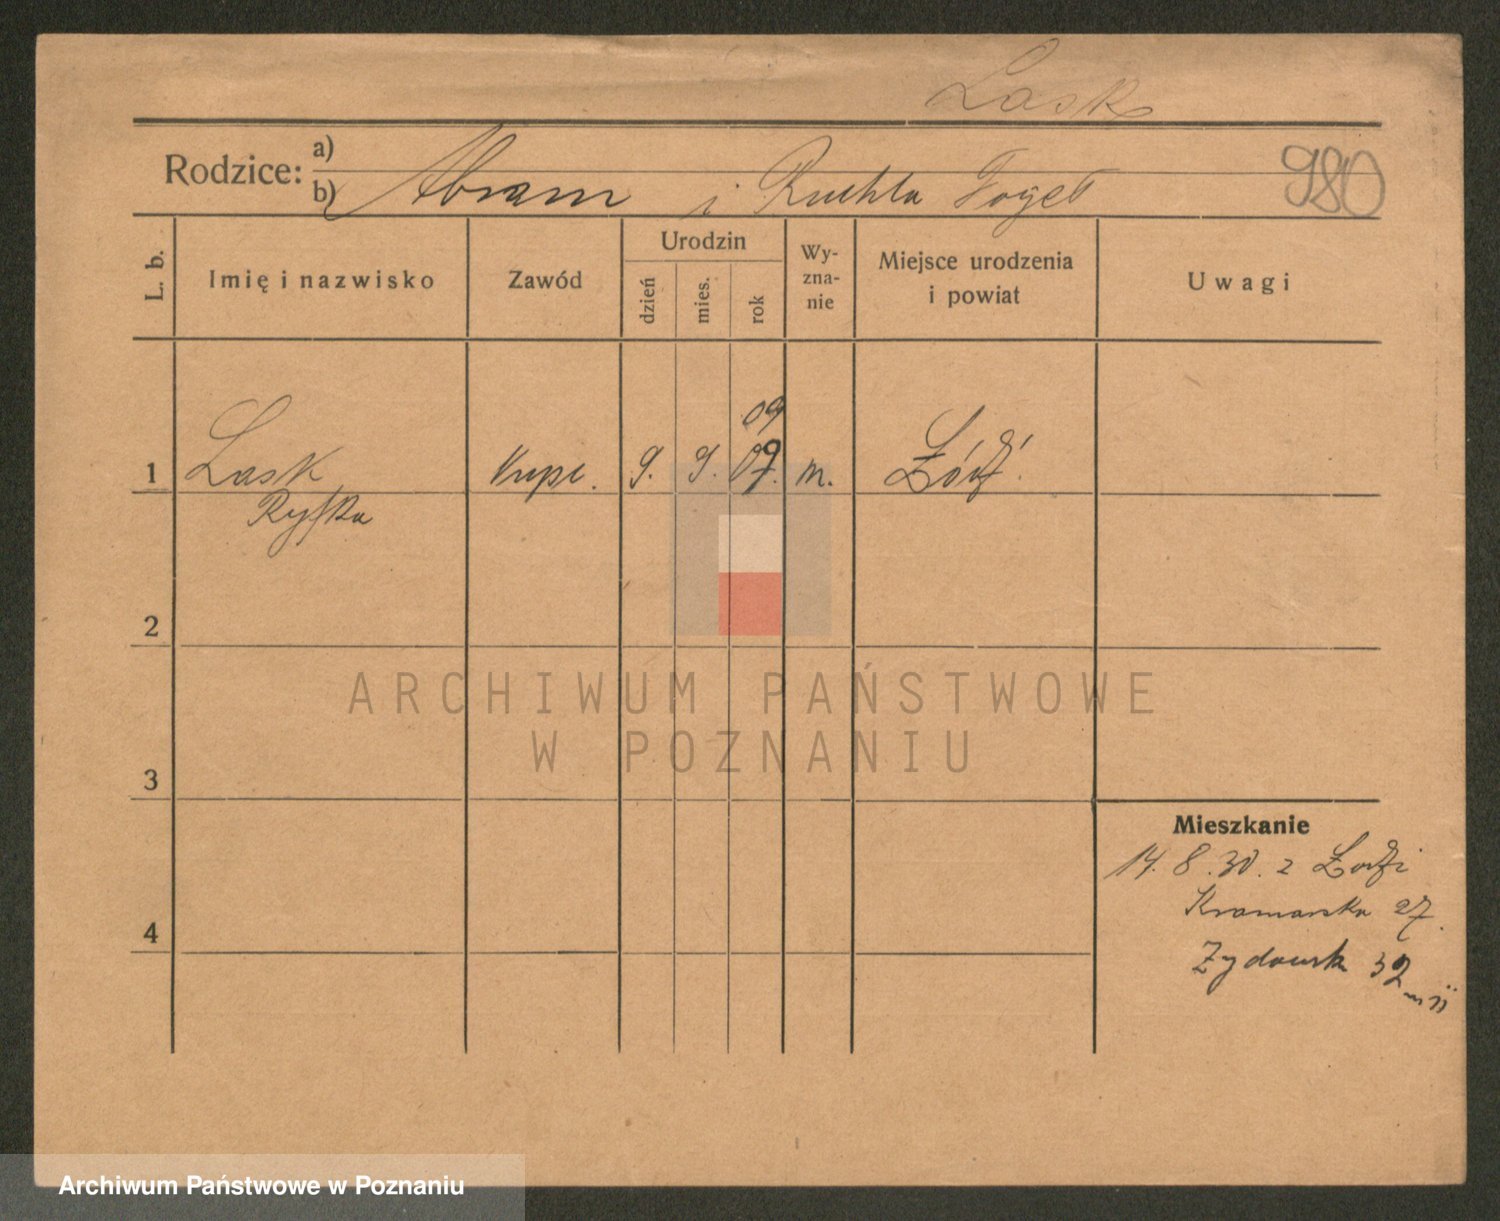 Lask
Rodzice: a)
b) Abram i Ruchla Fogel
980
L. b.
Imię i nazwisko
Zawód
Urodzin
dzień
mies.
rok
Wy-
zna-
nie
Miejsce urodzenia
i powiat
Uwagi
09
1 Lask kupc. 9. 9. 07. m. Łódź
Ryfka
2
ARCHIWUM PAŃSTWOWE
W POZNANIU
3
Mieszkanie
14. 8. 30. z Łodzi
Kramarska 27.
4
Żydowsk 32
Archiwum Państwowe w Poznaniu